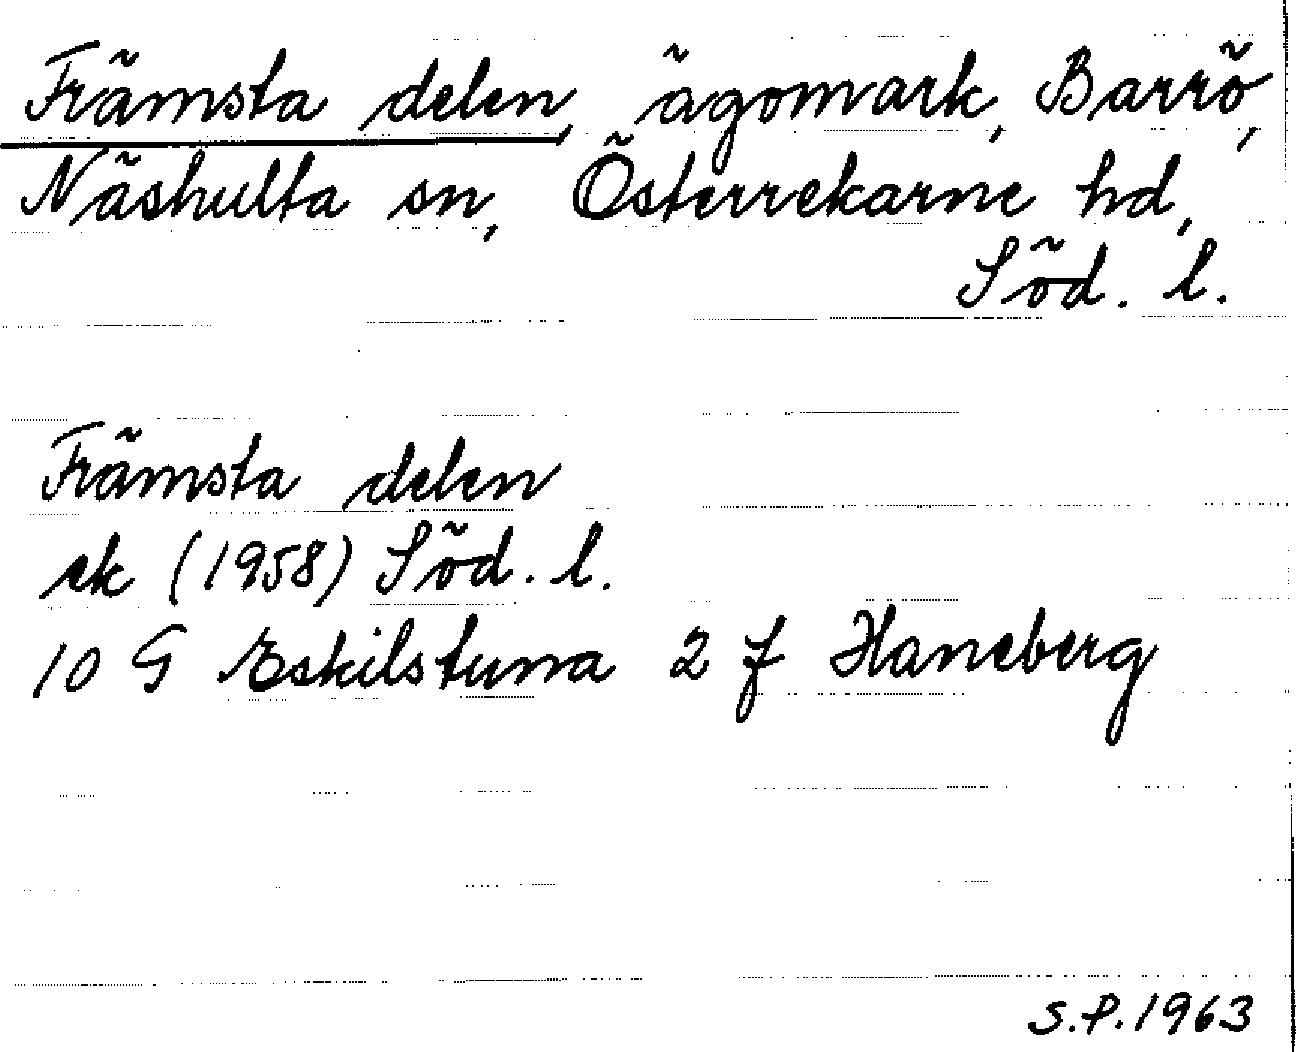 Främsta delen, ägomark, Barrö,
Näshulta sn, Österrekarne hd,
Söd. l.
Främsta delen
ek (1958) Söd. l.
10 G Eskilstuna 2 f Haneberg
S.P. 1963